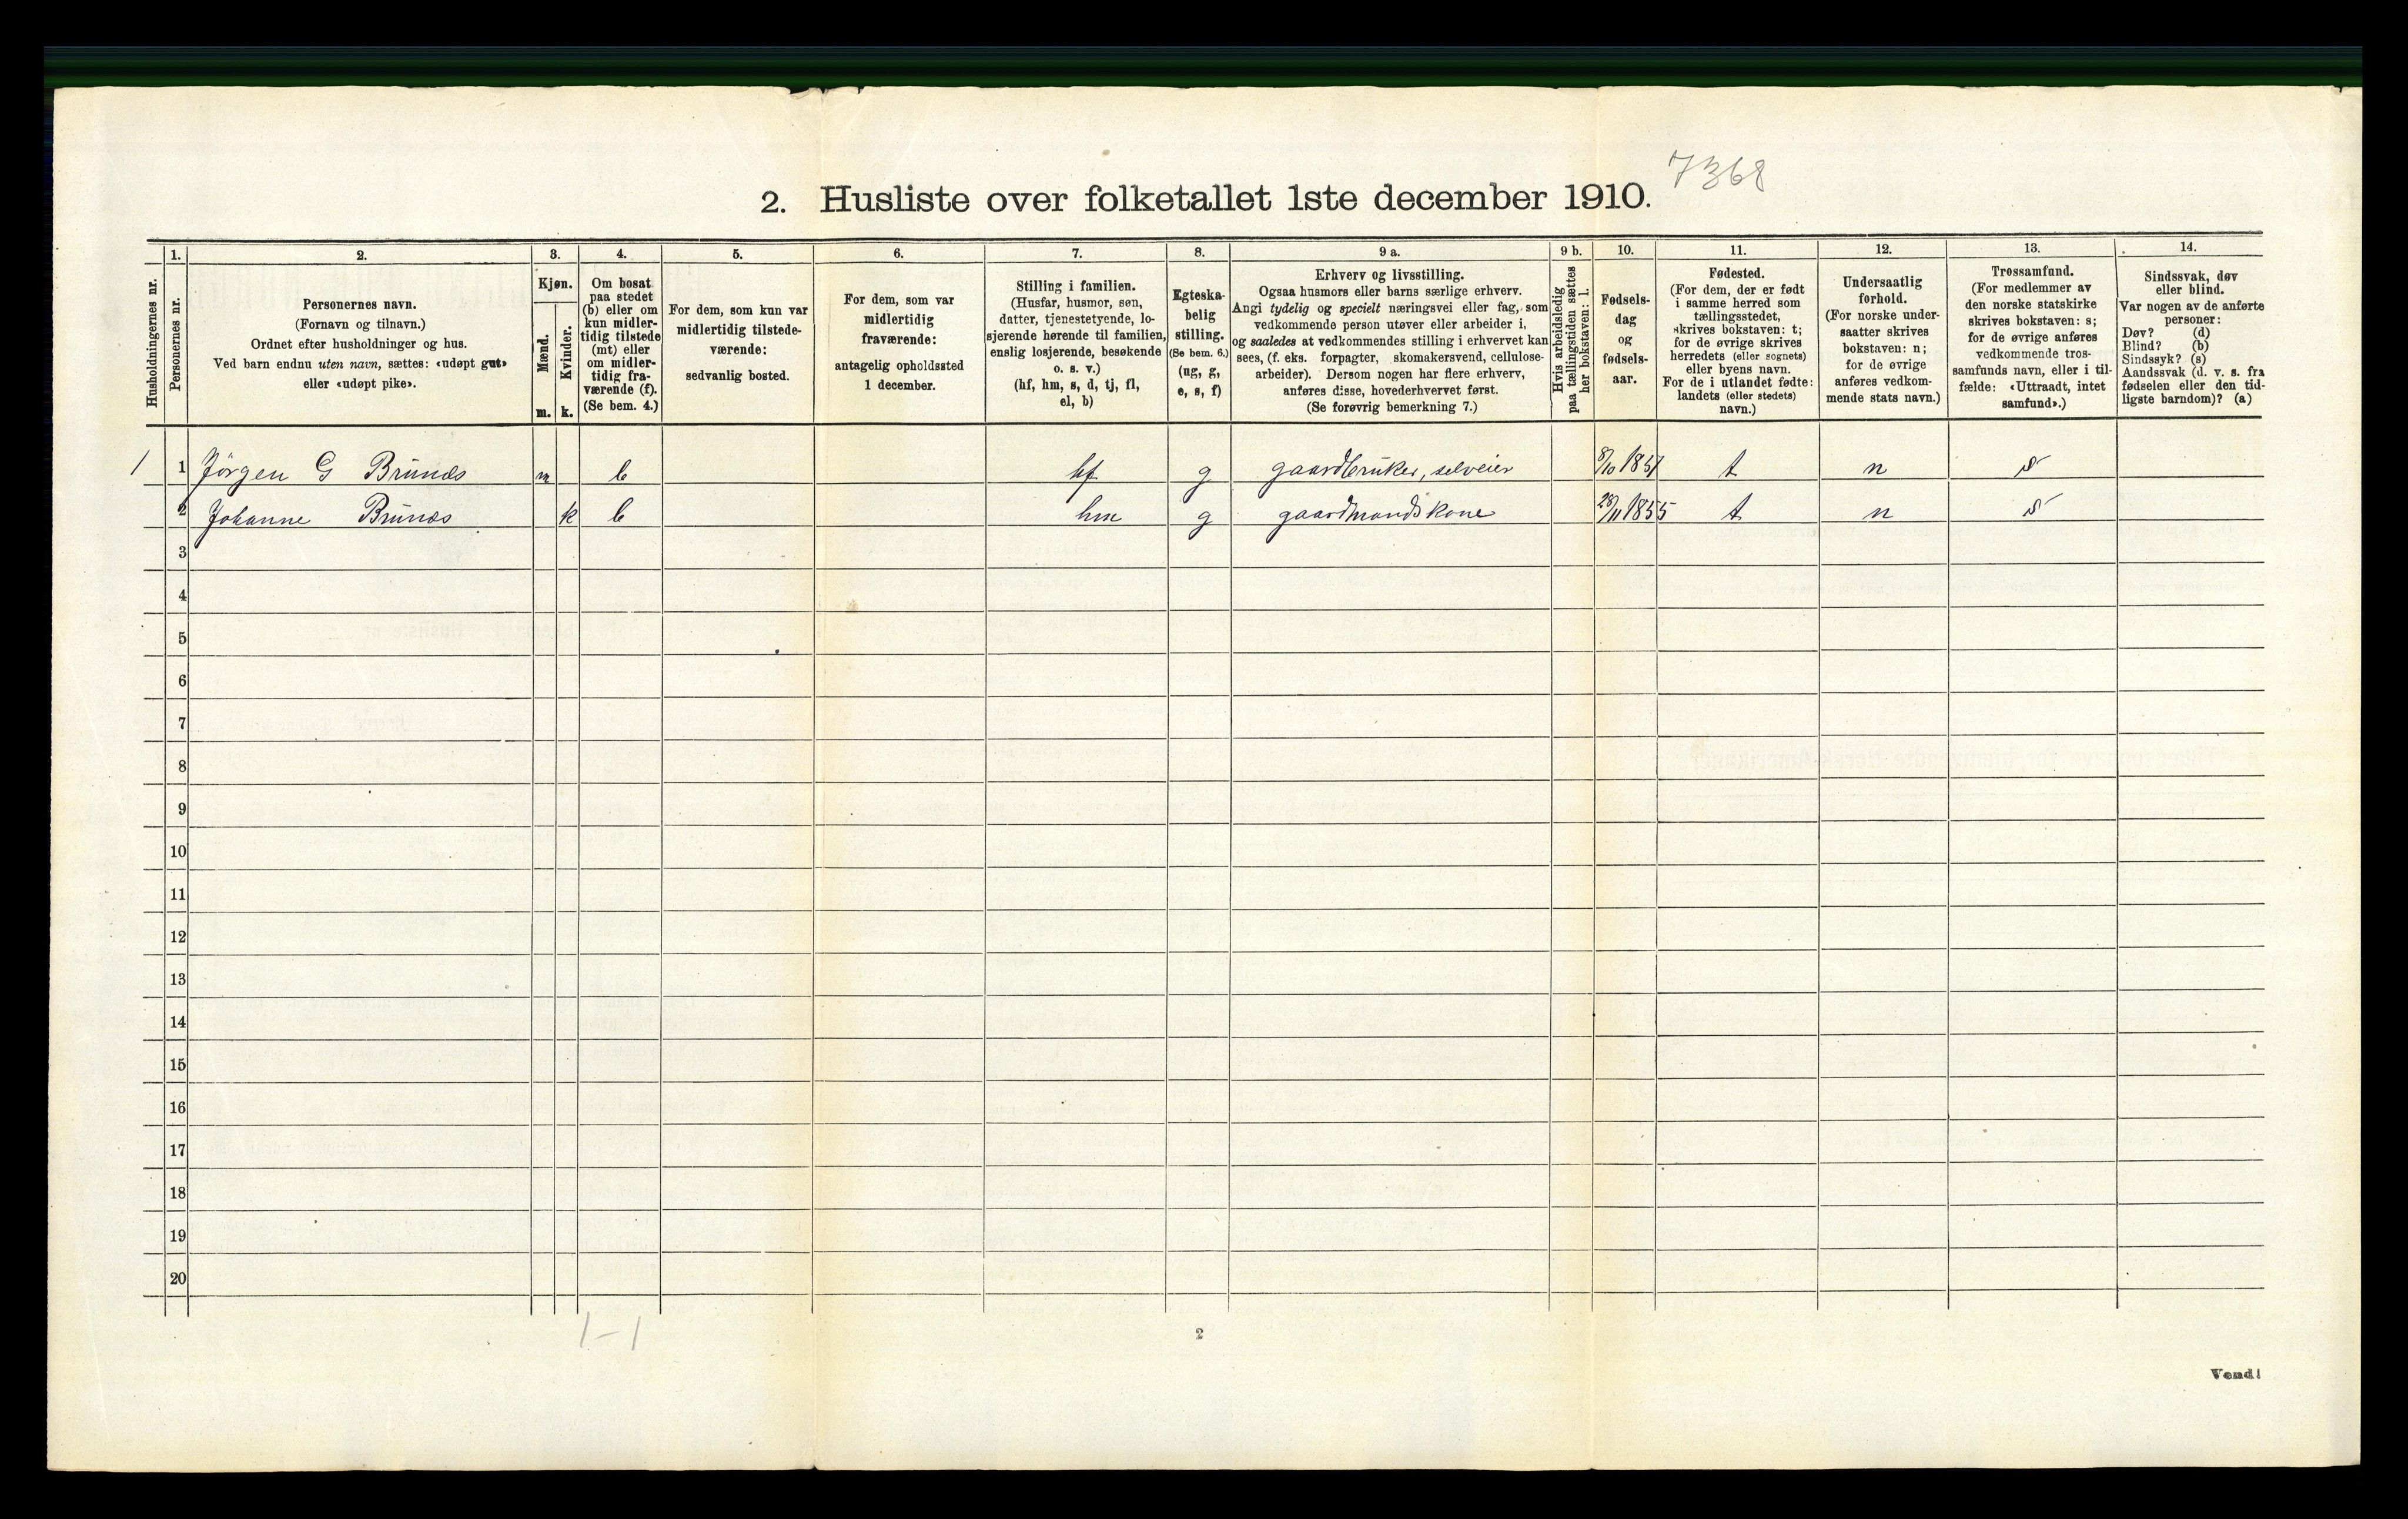 7368
2. Husliste over folketallet 1ste december 1910.
Husholdningernes nr.
1.
Personernes nr.
2.
Personernes navn.
(Fornavn og tilnavn.)
Ordnet efter husholdninger og hus.
Ved barn endnu uten navn, sættes: «udøpt gut»
eller «udøpt pike».
3.
Kjøn.
Mænd.
m.
Kvinder.
k.
4.
Om bosat
paa stedet
(b) eller om
kun midler-
tidig tilstede
(mt) eller
om midler-
tidig fra-
værende (f).
(Se bem. 4.)
5.
For dem, som kun var
midlertidig tilstede-
værende:
sedvanlig bosted.
6.
For dem, som var
midlertidig
fraværende:
antagelig opholdssted
1 december.
7.
Stilling i familien.
(Husfar, husmor, søn,
datter, tjenestetyende, lo-
sjerende hørende til familien,
enslig losjerende, besøkende
o. s. v.)
(hf, hm, s, d, tj, fl,
el, b)
8.
Egteska-
belig
stilling.
(Se bem. 6.)
(ug, g,
e, s, f)
9 a.
Erhverv og livsstilling.
Ogsaa husmors eller barns særlige erhverv.
Angi tydelig og specielt næringsvei eller fag, som
vedkommende person utøver eller arbeider i,
og saaledes at vedkommendes stilling i erhvervet kan
sees, (f. eks. forpagter, skomakersvend, cellulose-
arbeider). Dersom nogen har flere erhverv,
anføres disse, hovederhvervet først.
(Se forøvrig bemerkning 7.)
9 b.
Hvis arbeidsledig
paa tællingstiden sættes
her bokstaven: l.
10.
Fødsels-
dag
og
fødsels-
aar.
11.
Fødested.
(For dem, der er født
i samme herred som
tællingsstedet,
skrives bokstaven: t;
for de øvrige skrives
herredets (eller sognets)
eller byens navn.
For de i utlandet fødte:
landets (eller stedets)
navn.)
12.
Undersaatlig
forhold.
(For norske under-
saatter skrives
bokstaven: n;
for de øvrige
anføres vedkom-
mende stats navn.)
13.
Trossamfund.
(For medlemmer av
den norske statskirke
skrives bokstaven: s;
for de øvrige anføres
vedkommende tros-
samfunds navn, eller i til-
fælde: «Uttraadt, intet
samfund».)
14.
Sindssvak, døv
eller blind.
Var nogen av de anførte
personer:
Døv? (d)
Blind? (b)
Sindssyk? (s)
Aandssvak (d. v. s. fra
fødselen eller den tid-
ligste barndom)? (a)
1 1 Jörgen G Brunæs m b hf g gaardbruker, selveier t n s
2 Johanne Brunæs k b hm g gaardmandskone 28/11 1855 t n s
3
4
5
6
7
8
9
10
11
12
13
14
15
16
17
18
19
20
1-1
2
Vend!